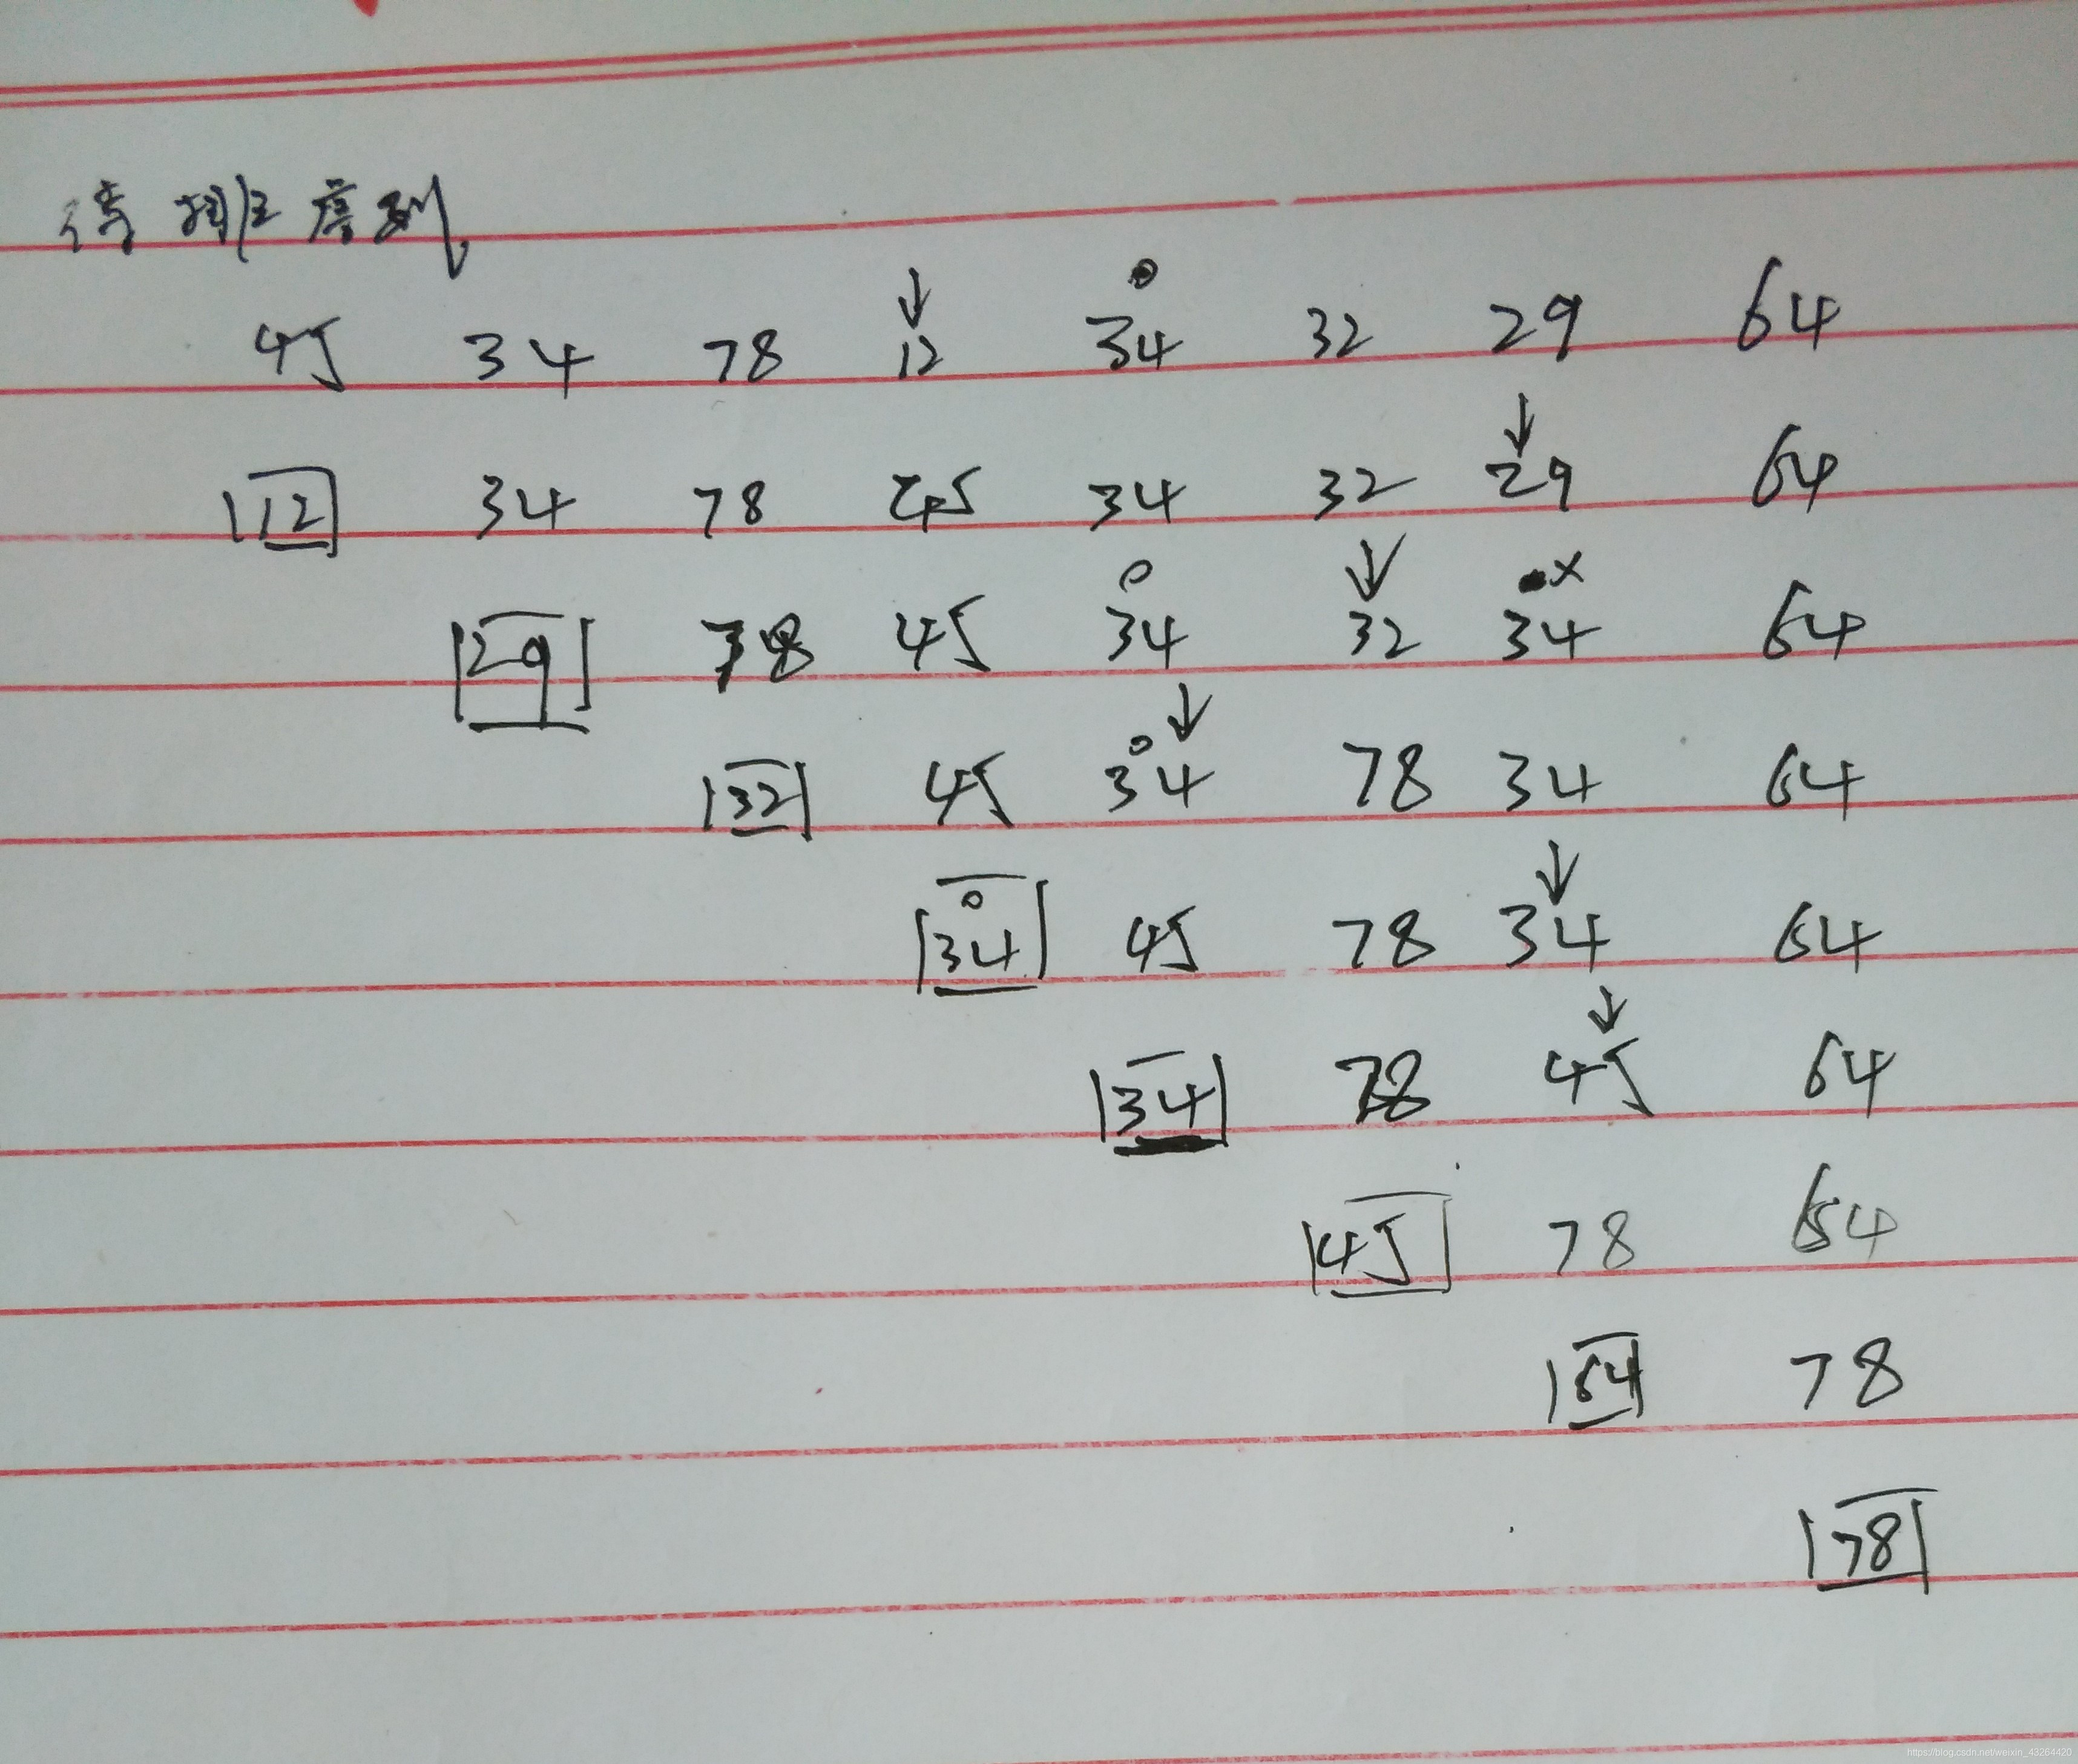 待排序列
45 34 78 12 34 32 29 64
12 34 78 45 34 32 29 64
29 78 45 34 32 34 64
32 45 34 78 34 64
34 45 78 34 64
34 78 45 64
45 78 64
64 78
78
https://blog.csdn.net/weixin_43264420